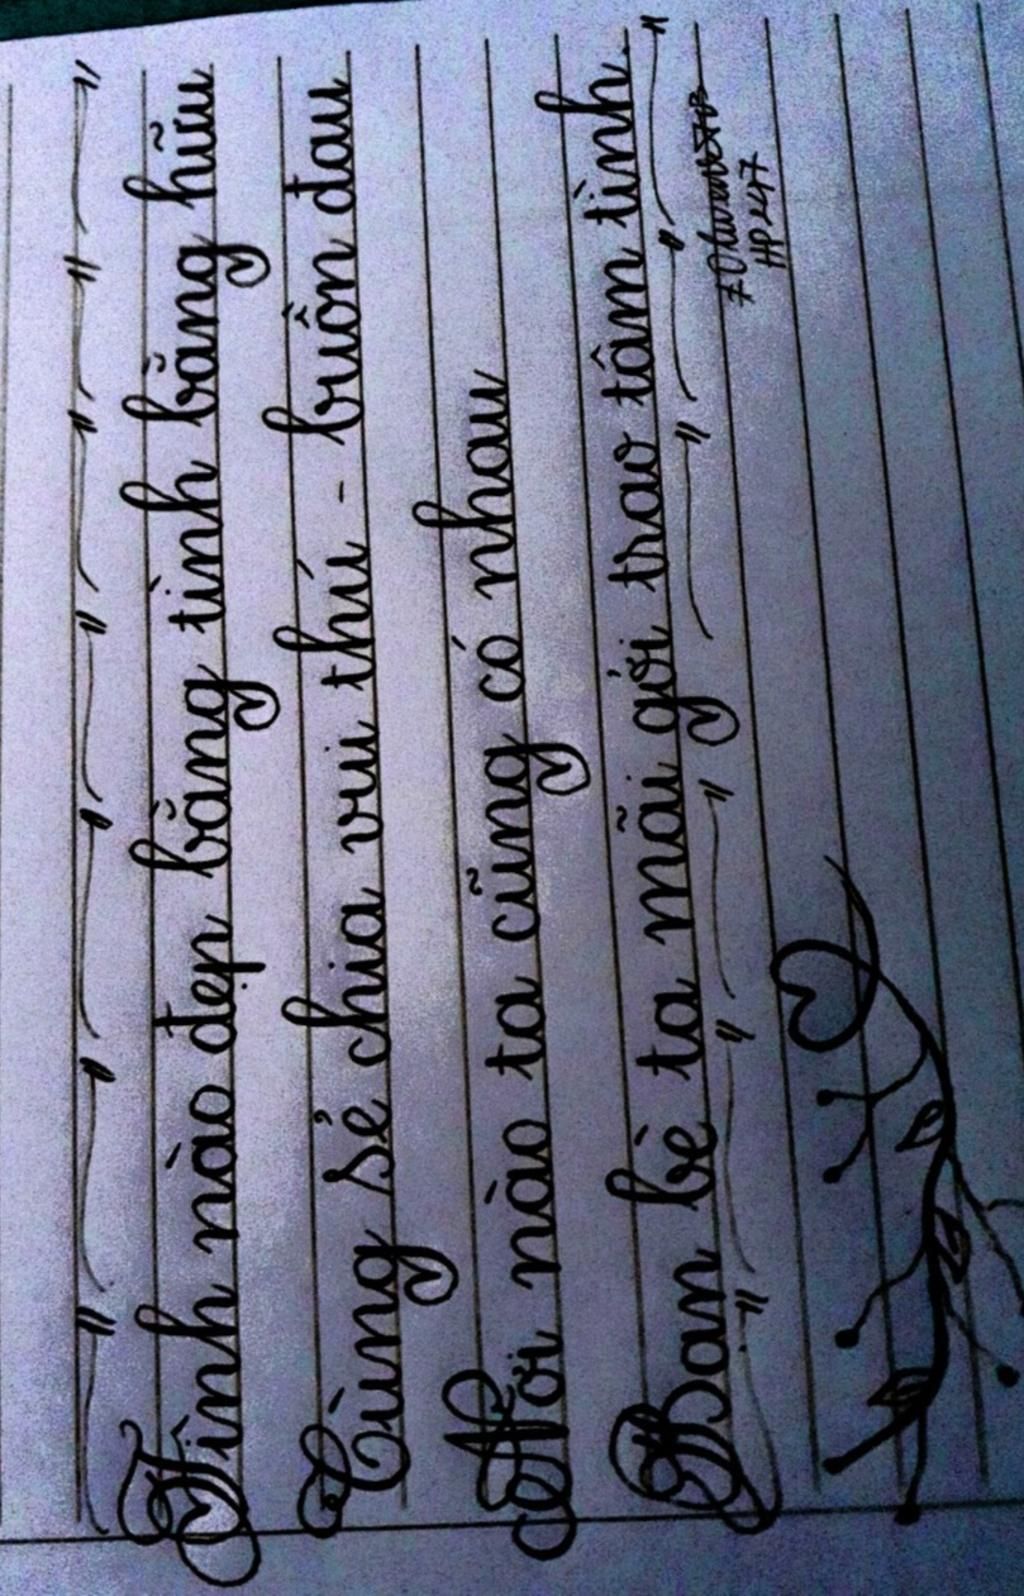 Tình nào đẹp bằng tình bằng hữu
Cùng sẻ chia vui thú - buồn đau
Nơi nào ta cũng có nhau
Bạn bè ta mãi gởi trao tâm tình.
HP247